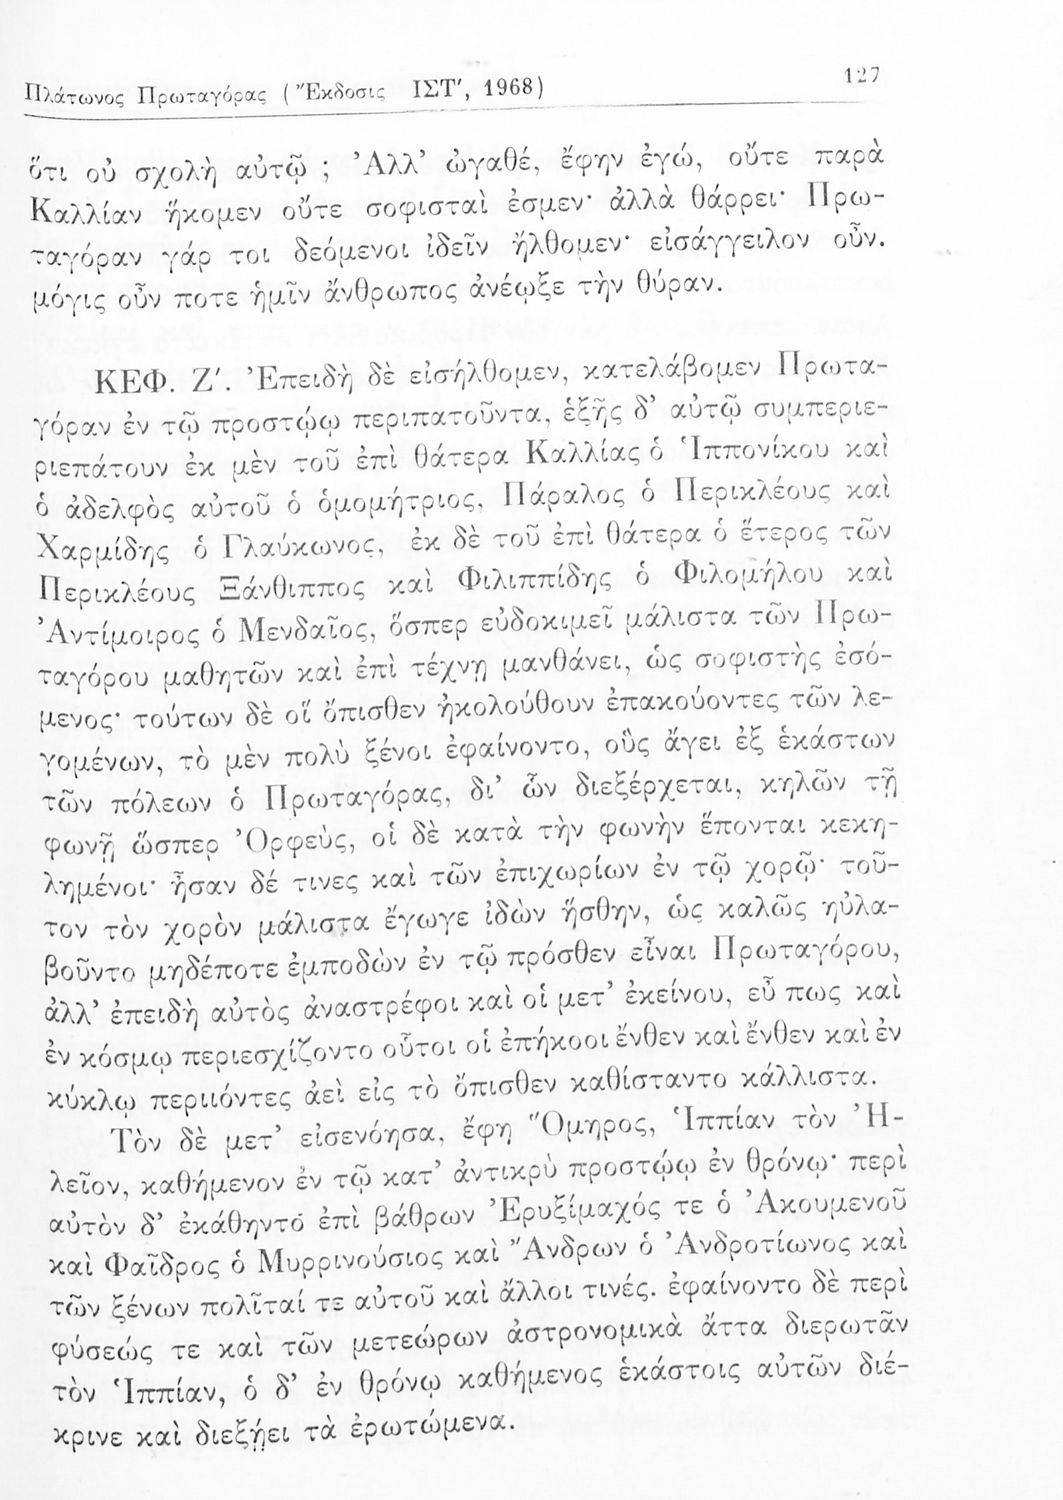 Πλάτωνος Πρωταγόρας (Ἔκδοσις ΙΣΤ′, 1968) 127
ὅτι οὐ σχολὴ αὐτῷ ; Ἀλλ’ ὠγαθέ, ἔφην ἐγώ, οὔτε παρὰ
Καλλίαν ἥκομεν οὔτε σοφισταὶ ἐσμεν· ἀλλὰ θάρρει· Πρω-
ταγόραν γάρ τοι δεόμενοι ἰδεῖν ἤλθομεν· εἰσάγγειλον οὖν.
μόγις οὖν ποτε ἡμῖν ἄνθρωπος ἀνέῳξε τὴν θύραν.
ΚΕΦ. Ζ′. Ἐπειδὴ δὲ εἰσήλθομεν, κατελάβομεν Πρωτα-
γόραν ἐν τῷ προστῴῳ περιπατοῦντα, ἑξῆς δ’ αὐτῷ συμπεριε-
ριεπάτουν ἐκ μὲν τοῦ ἐπὶ θάτερα Καλλίας ὁ Ἱππονίκου καὶ
ὁ ἀδελφὸς αὐτοῦ ὁ ὁμομήτριος, Πάραλος ὁ Περικλέους καὶ
Χαρμίδης ὁ Γλαύκωνος, ἐκ δὲ τοῦ ἐπὶ θάτερα ὁ ἕτερος τῶν
Περικλέους Ξάνθιππος καὶ Φιλιππίδης ὁ Φιλομήλου καὶ
Ἀντίμοιρος ὁ Μενδαῖος, ὅσπερ εὐδοκιμεῖ μάλιστα τῶν Πρω-
ταγόρου μαθητῶν καὶ ἐπὶ τέχνῃ μανθάνει, ὡς σοφιστὴς ἐσό-
μενος· τούτων δὲ οἳ ὄπισθεν ἠκολούθουν ἐπακούοντες τῶν λε-
γομένων, τὸ μὲν πολὺ ξένοι ἐφαίνοντο, οὓς ἄγει ἐξ ἑκάστων
τῶν πόλεων ὁ Πρωταγόρας, δι’ ὧν διεξέρχεται, κηλῶν τῇ
φωνῇ ὥσπερ Ὀρφεὺς, οἱ δὲ κατὰ τὴν φωνὴν ἕπονται κεκη-
λημένοι· ἦσαν δέ τινες καὶ τῶν ἐπιχωρίων ἐν τῷ χορῷ· τοῦ-
τον τὸν χορὸν μάλιστα ἔγωγε ἰδὼν ἥσθην, ὡς καλῶς ηὐλα-
βοῦντο μηδέποτε ἐμποδὼν ἐν τῷ πρόσθεν εἶναι Πρωταγόρου,
ἀλλ’ ἐπειδὴ αὐτὸς ἀναστρέφοι καὶ οἱ μετ’ ἐκείνου, εὖ πως καὶ
ἐν κόσμῳ περιεσχίζοντο οὗτοι οἱ ἐπήκοοι ἔνθεν καὶ ἔνθεν καὶ ἐν
κύκλῳ περιιόντες ἀεὶ εἰς τὸ ὄπισθεν καθίσταντο κάλλιστα.
Τὸν δὲ μετ’ εἰσενόησα, ἔφη Ὅμηρος, Ἱππίαν τὸν Ἠ-
λεῖον, καθήμενον ἐν τῷ κατ’ ἀντικρὺ προστῴῳ ἐν θρόνῳ· περὶ
αὐτὸν δ’ ἐκάθηντο ἐπὶ βάθρων Ἐρυξίμαχός τε ὁ Ἀκουμενοῦ
καὶ Φαῖδρος ὁ Μυρρινούσιος καὶ Ἄνδρων ὁ Ἀνδροτίωνος καὶ
τῶν ξένων πολῖταί τε αὐτοῦ καὶ ἄλλοι τινές. ἐφαίνοντο δὲ περὶ
φύσεώς τε καὶ τῶν μετεώρων ἀστρονομικὰ ἄττα διερωτᾶν
τὸν Ἱππίαν, ὁ δ’ ἐν θρόνῳ καθήμενος ἑκάστοις αὐτῶν διέ-
κρινε καὶ διεξῄει τὰ ἐρωτώμενα.